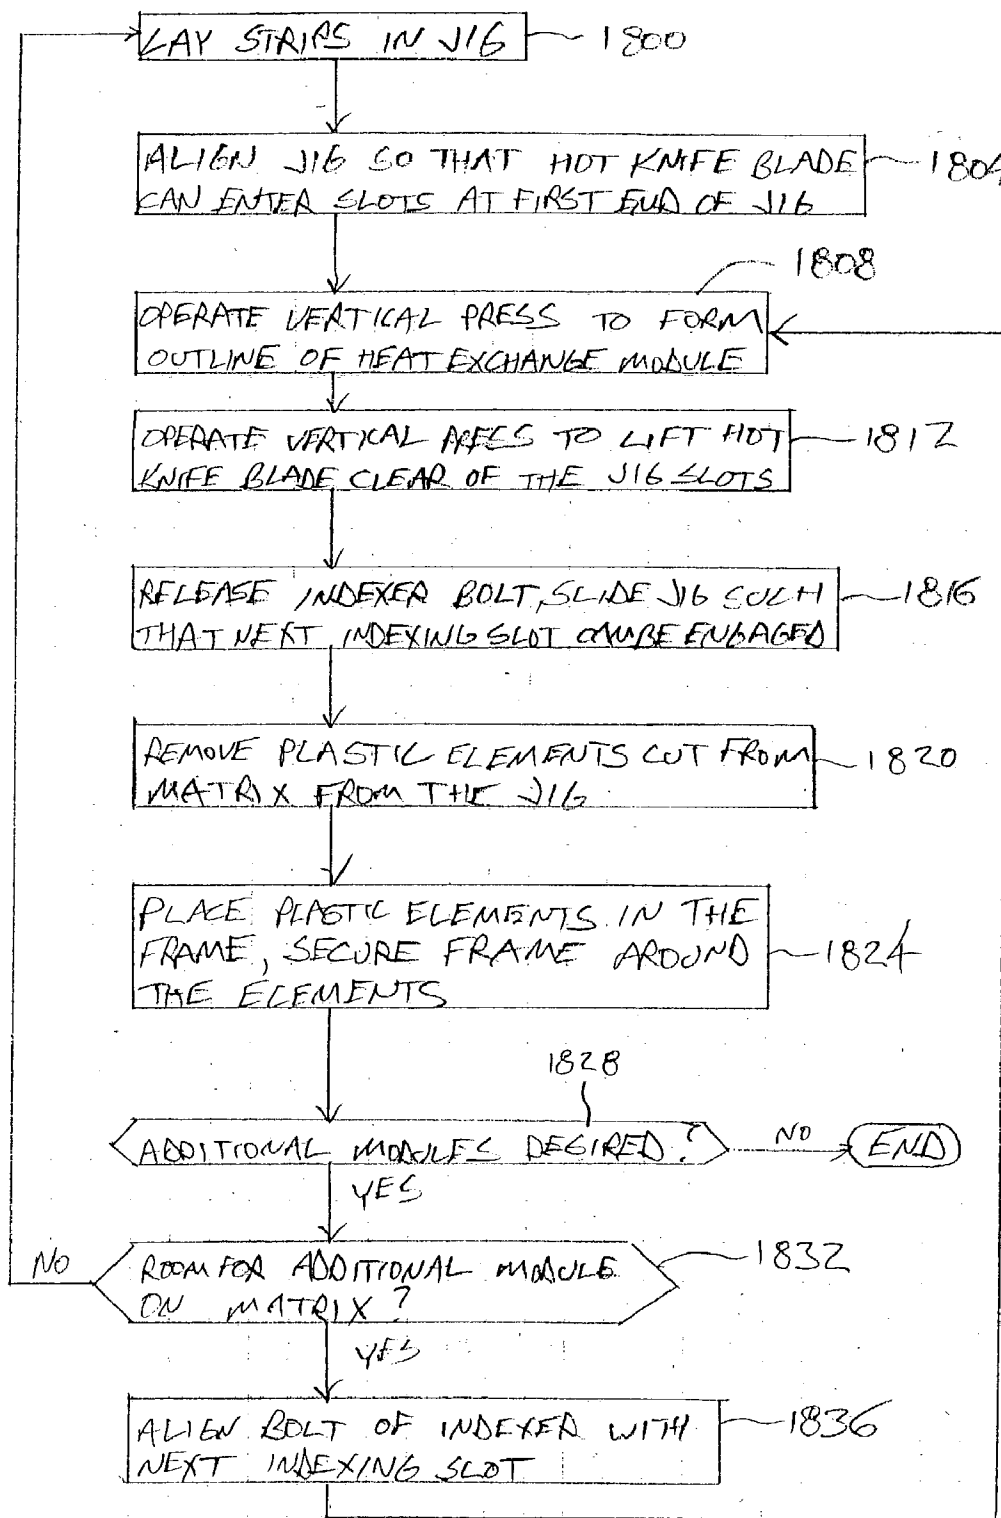 LAY STRIPS IN JIG 1800
ALIGN JIG SO THAT HOT KNIFE BLADE 1804
CAN ENTER SLOTS AT FIRST END OF JIG
1808
OPERATE VERTICAL PRESS TO FORM
OUTLINE OF HEAT EXCHANGE MODULE
OPERATE VERTICAL PRESS TO LIFT HOT 1812
KNIFE BLADE CLEAR OF THE JIG SLOTS
RELEASE INDEXER BOLT, SLIDE JIG SUCH 1816
THAT NEXT INDEXING SLOT CAN BE ENGAGED
REMOVE PLASTIC ELEMENTS CUT FROM 1820
MATRIX FROM THE JIG
PLACE PLASTIC ELEMENTS IN THE
FRAME, SECURE FRAME AROUND 1824
THE ELEMENTS
1828
ADDITIONAL MODULES DESIRED? NO END
YES
NO ROOM FOR ADDITIONAL MODULE 1832
ON MATRIX?
YES
ALIGN BOLT OF INDEXER WITH 1836
NEXT INDEXING SLOT